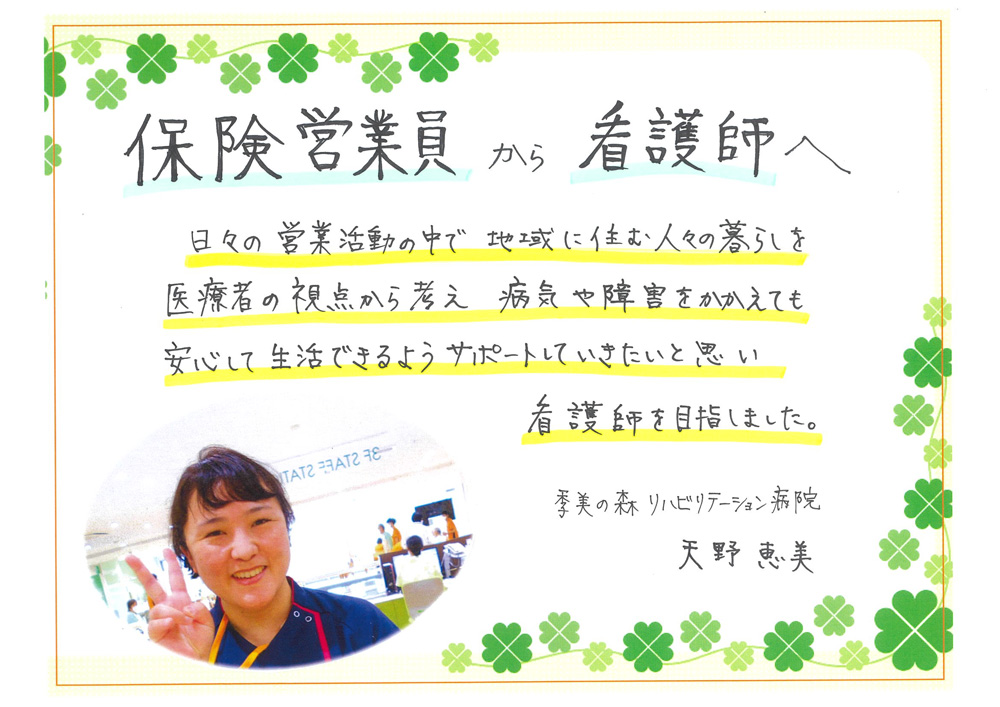 保険営業員 から 看護師へ
日々の営業活動の中で 地域に住む人々の暮らしを
医療者の視点から考え 病気や障害をかかえても
安心して生活できるようサポートしていきたいと思い
看護師を目指しました。
季美の森リハビリテーション病院
天野 恵美
3F STAFF STATI